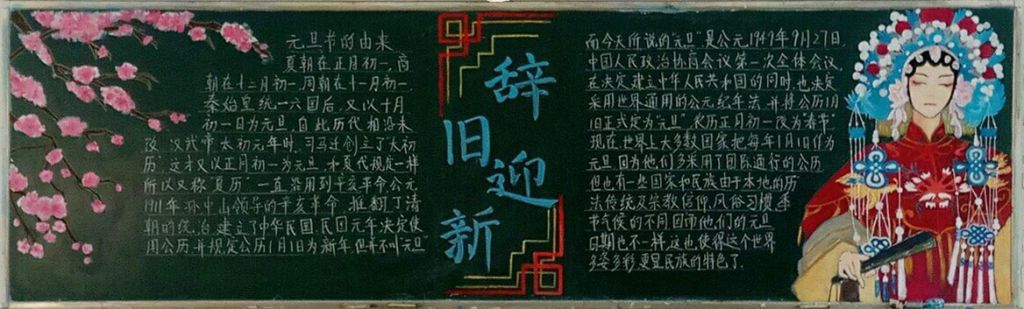 元旦节的由来
夏朝在正月初一，商
朝在十二月初一，周朝在十一月初一，
秦始皇统一六国后，又以十月
初一日为元旦，自此历代相沿未
改，汉武帝太初元年时，司马迁创立了“太初
历”这才又以正月初一为元旦，和夏代规定一样
所以又称“夏历”一直沿用到辛亥革命公元
1911年孙中山领导的辛亥革命，推翻了清
朝的统治，建立了中华民国，民国元年决定使
用公历，并规定公历1月1日为新年，但并不叫元旦
辞
旧
迎
新
而今天所说的“元旦”，是公元1949年9月27日，
中国人民政治协商会议第一次全体会议，
在决定建立中华人民共和国的同时，也决定
采用世界通用的公元纪年法，并将公历1月
1日正式定为“元旦”农历正月初一改为“春节”
现在世界上大多数国家把每年1月1日作为
元旦因为他们多采用了国际通行的公历
但也有些国家和民族由于本地的历
法传统及宗教信仰，风俗习惯，季
节气候的不同因而他们的元旦
日期也不一样，这也使得这个世界
多姿多彩，更显民族的特色了.